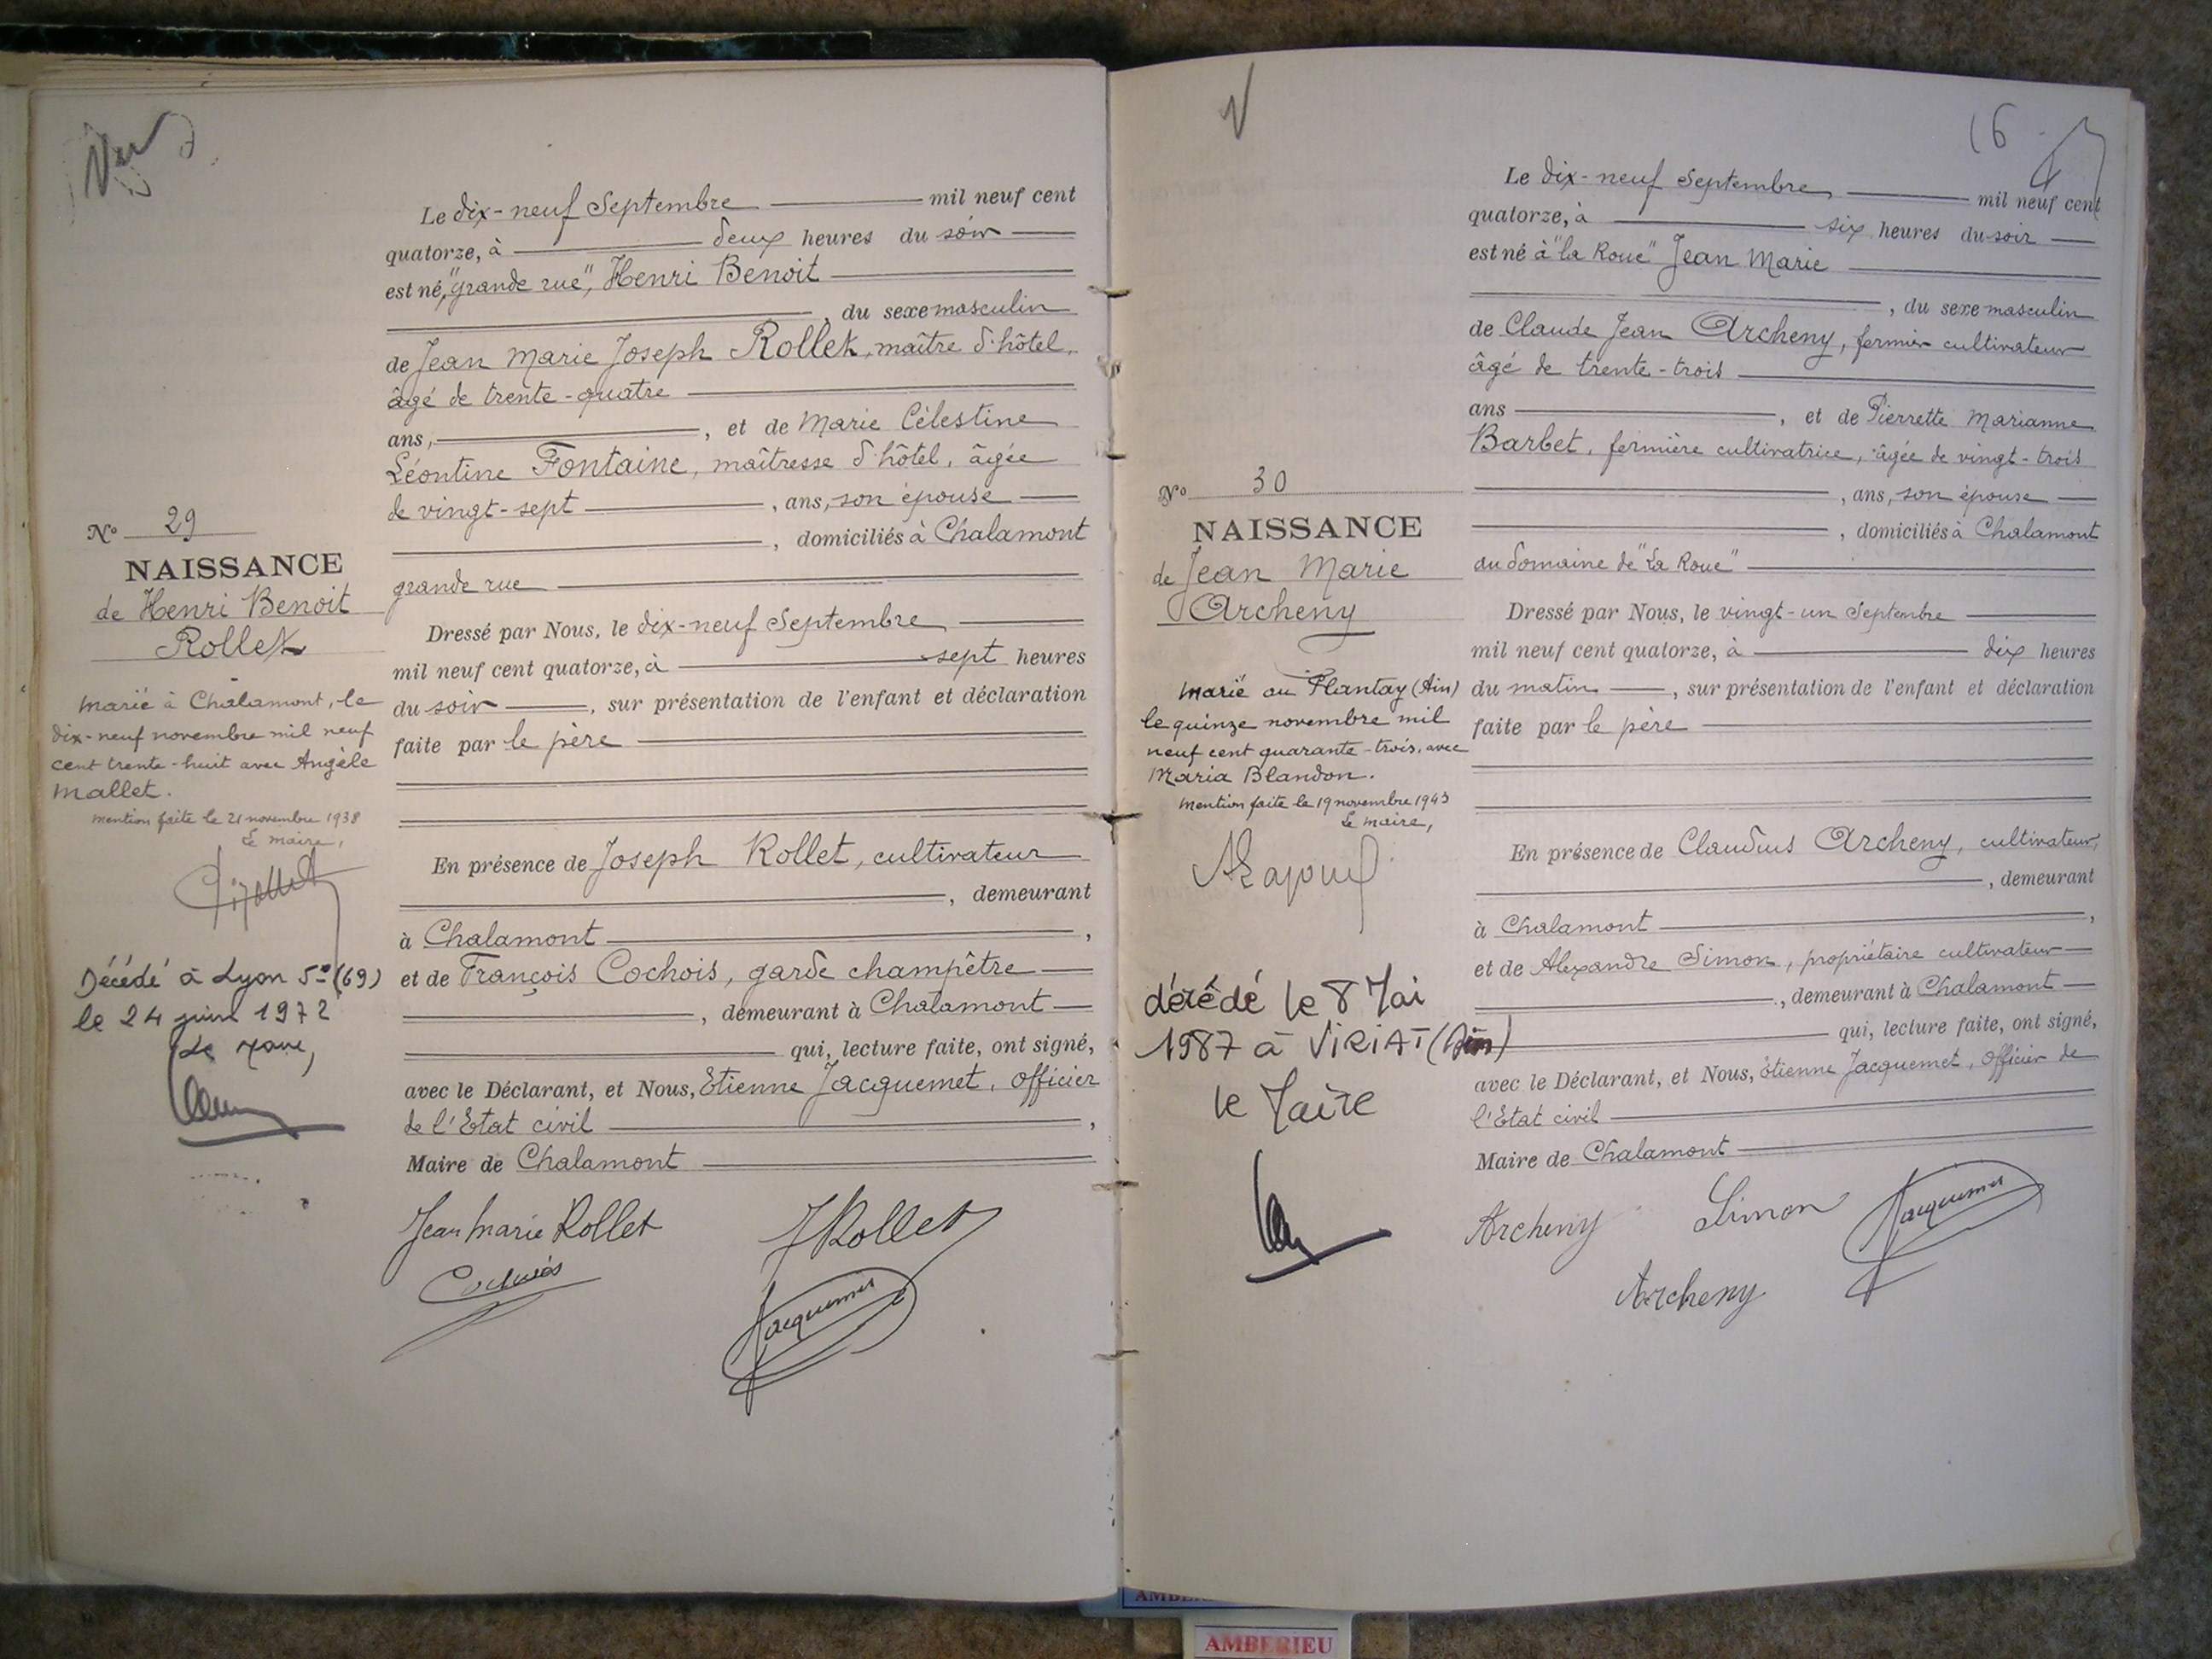 Le dix-neuf Septembre mil neuf cent
quatorze, à deux heures du soir
est né, "grande rue", Henri Benoit
, du sexe masculin
de Jean Marie Joseph Rollet, maître d'hôtel,
âgé de trente-quatre
ans, , et de Marie Célestine
Léontine Fontaine, maîtresse d'hôtel, âgée
de vingt-sept , ans, son épouse
, domiciliés à Chalamont
grande rue
Dressé par Nous, le dix-neuf Septembre
mil neuf cent quatorze, à sept heures
du soir , sur présentation de l'enfant et déclaration
faite par le père
En présence de Joseph Rollet, cultivateur
, demeurant
à Chalamont ,
et de François Cochois, garde champêtre
, demeurant à Chalamont
qui, lecture faite, ont signé,
avec le Déclarant, et Nous, Etienne Jacquemet, officier
de l'Etat civil ,
Maire de Chalamont
Jean Marie Rollet
J Rollet
Cochois
Jacquemet
No 29
NAISSANCE
de Henri Benoit
Rollet
Marié à Chalamont, le
dix-neuf novembre mil neuf
cent trente-huit avec Angèle
Mallet.
Mention faite le 21 novembre 1938
Le maire,
Décédé à Lyon 5e (69)
le 24 juin 1972
Le Maire,
16
Le dix-neuf Septembre mil neuf cent
quatorze, à six heures du soir
est né à "la Roue" Jean Marie
, du sexe masculin
de Claude Jean Archeny, fermier cultivateur
âgé de trente-trois
ans , et de Pierrette Marianne
Barbet, fermière cultivatrice, âgée de vingt-trois
, ans, son épouse
, domiciliés à Chalamont
au domaine de "La Roue"
Dressé par Nous, le vingt-un Septembre
mil neuf cent quatorze, à dix heures
du matin , sur présentation de l'enfant et déclaration
faite par le père
En présence de Claudius Archeny, cultivateur,
, demeurant
à Chalamont ,
et de Alexandre Simon, propriétaire cultivateur
, demeurant à Chalamont
qui, lecture faite, ont signé,
avec le Déclarant, et Nous, Etienne Jacquemet, officier de
l'Etat civil
Maire de Chalamont
Archeny
Simon
Jacquemet
Archeny
No 30
NAISSANCE
de Jean Marie
Archeny
Marié au Plantay (Ain)
le quinze novembre mil
neuf cent quarante-trois, avec
Maria Blandon.
Mention faite le 19 novembre 1943
Le maire,
décédé le 8 Mai
1987 à VIRIAT (Ain)
le Maire
AMBERIEU